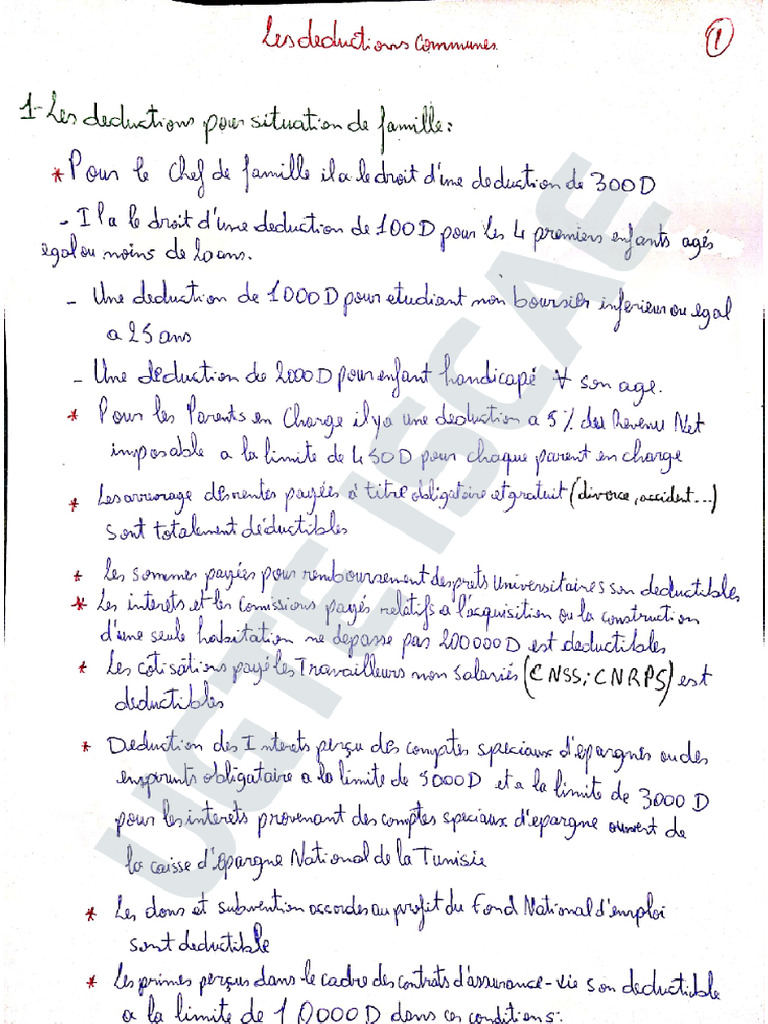 Les deductions communes.
1
1- Les deductions pour situation de famille:
* Pour le chef de famille il a le droit d'une deduction de 300D
- Il a le droit d'une deduction de 100D pour les 4 premiers enfants agés
egal ou moins de 20 ans.
- Une deduction de 1000D pour etudiant non boursier inferieur ou egal
a 25 ans
- Une deduction de 2000D pour enfant handicapé ∀ son age.
* Pour les Parents en charge il y a une deduction a 5% du Revenu Net
imposable a la limite de 450D pour chaque parent en charge
* Les arreurage des rentes payées à titre obligatoire et gratuit (divorce, accident...)
sont totalement déductibles
* Les sommes payées pour remboursement des prets Universitaires son deductibles
* Les interets et les comissions payés relatifs a l'acquisition ou la construction
d'une seule habitation ne depasse pas 200000D est deductibles
* Les cotisations payé les Travailleurs non Salariés (CNSS; CNRPS) est
deductibles
* Deduction des Interets perçu des comptes speciaux d'epargnes ou des
emprunts obligataire a la limite de 5000D et a la limite de 3000D
pour les interets provenant des comptes speciaux d'epargne ouvert de
la caisse d'épargne National de la Tunisie
* Les dons et subvention accordes au profit du Fond National d'emploi
sont deductible
* Les primes perçus dans le cadre des contrats d'assurance-vie son deductible
a la limite de 10000D dans ces conditions:
UGTE ISCAE